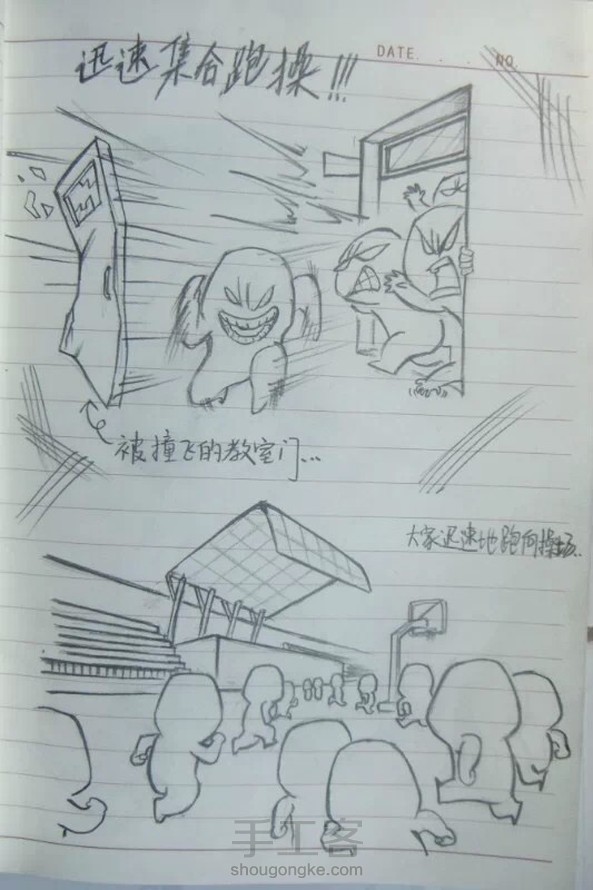 迅速集合跑操!!!
DATE. . . . NO.
被撞飞的教室门...
大家迅速地跑向操场.
手工客
shougongke.com